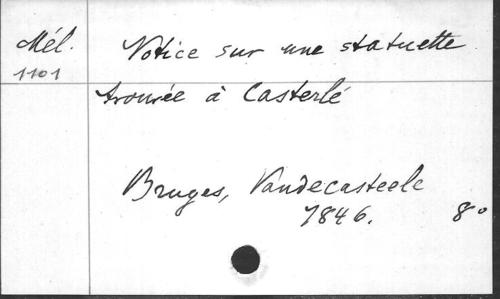 Mél.
1101
Notice sur une statuette
trouvée à Casterlé
Bruges, Vandecasteele
1846. 8°